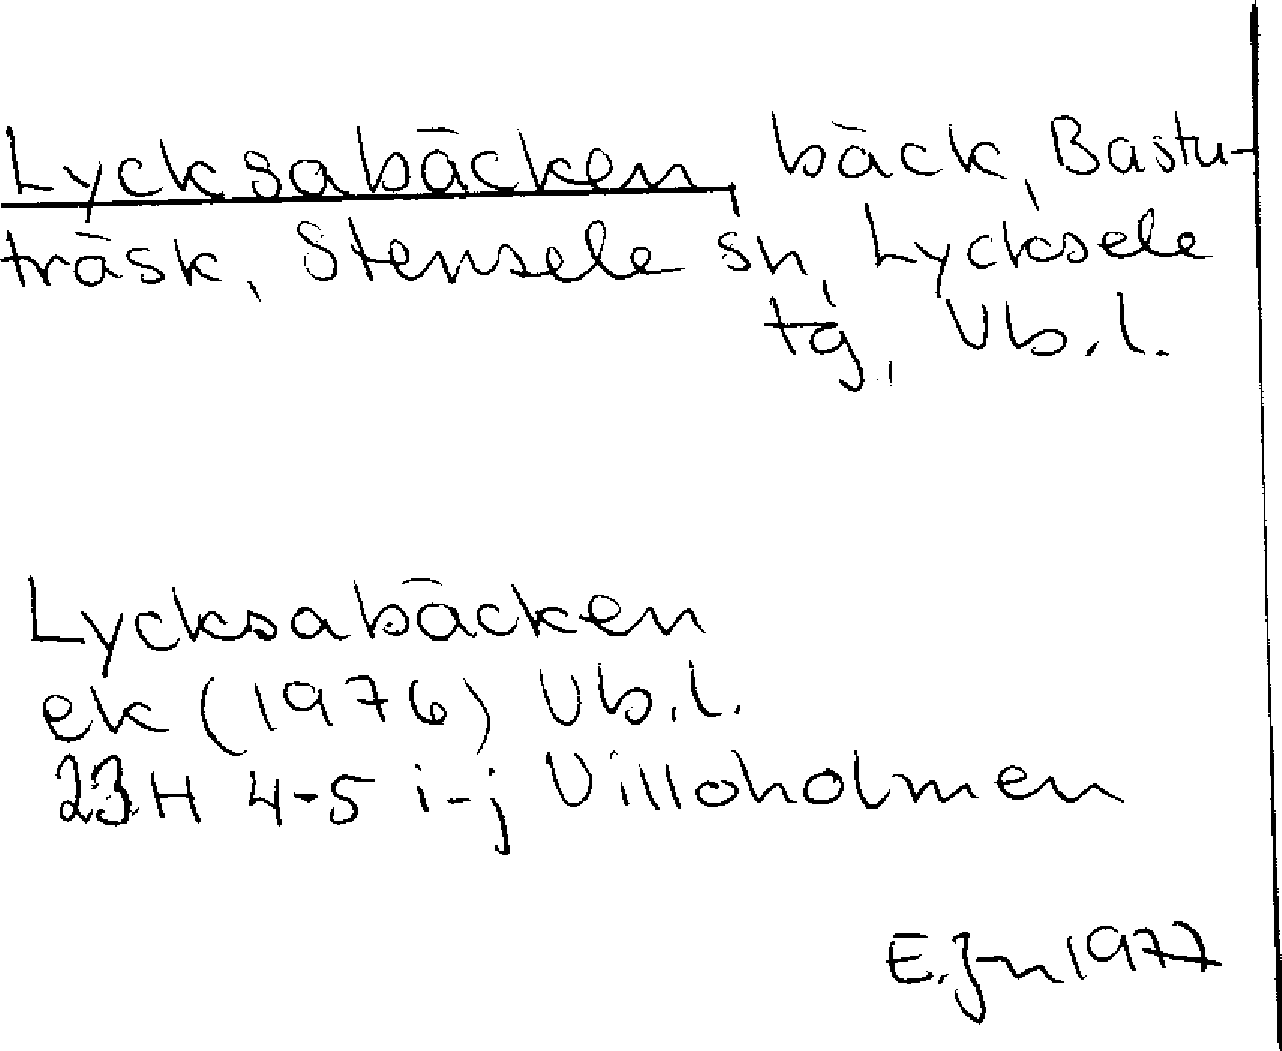 Lycksabäcken, bäck, Bastu-
träsk, Stensele sn, Lycksele
tg, Vb.l.
Lycksabäcken
ek (1976) Vb.l.
23H 4-5 i-j Villoholmen
E.Jn 1977